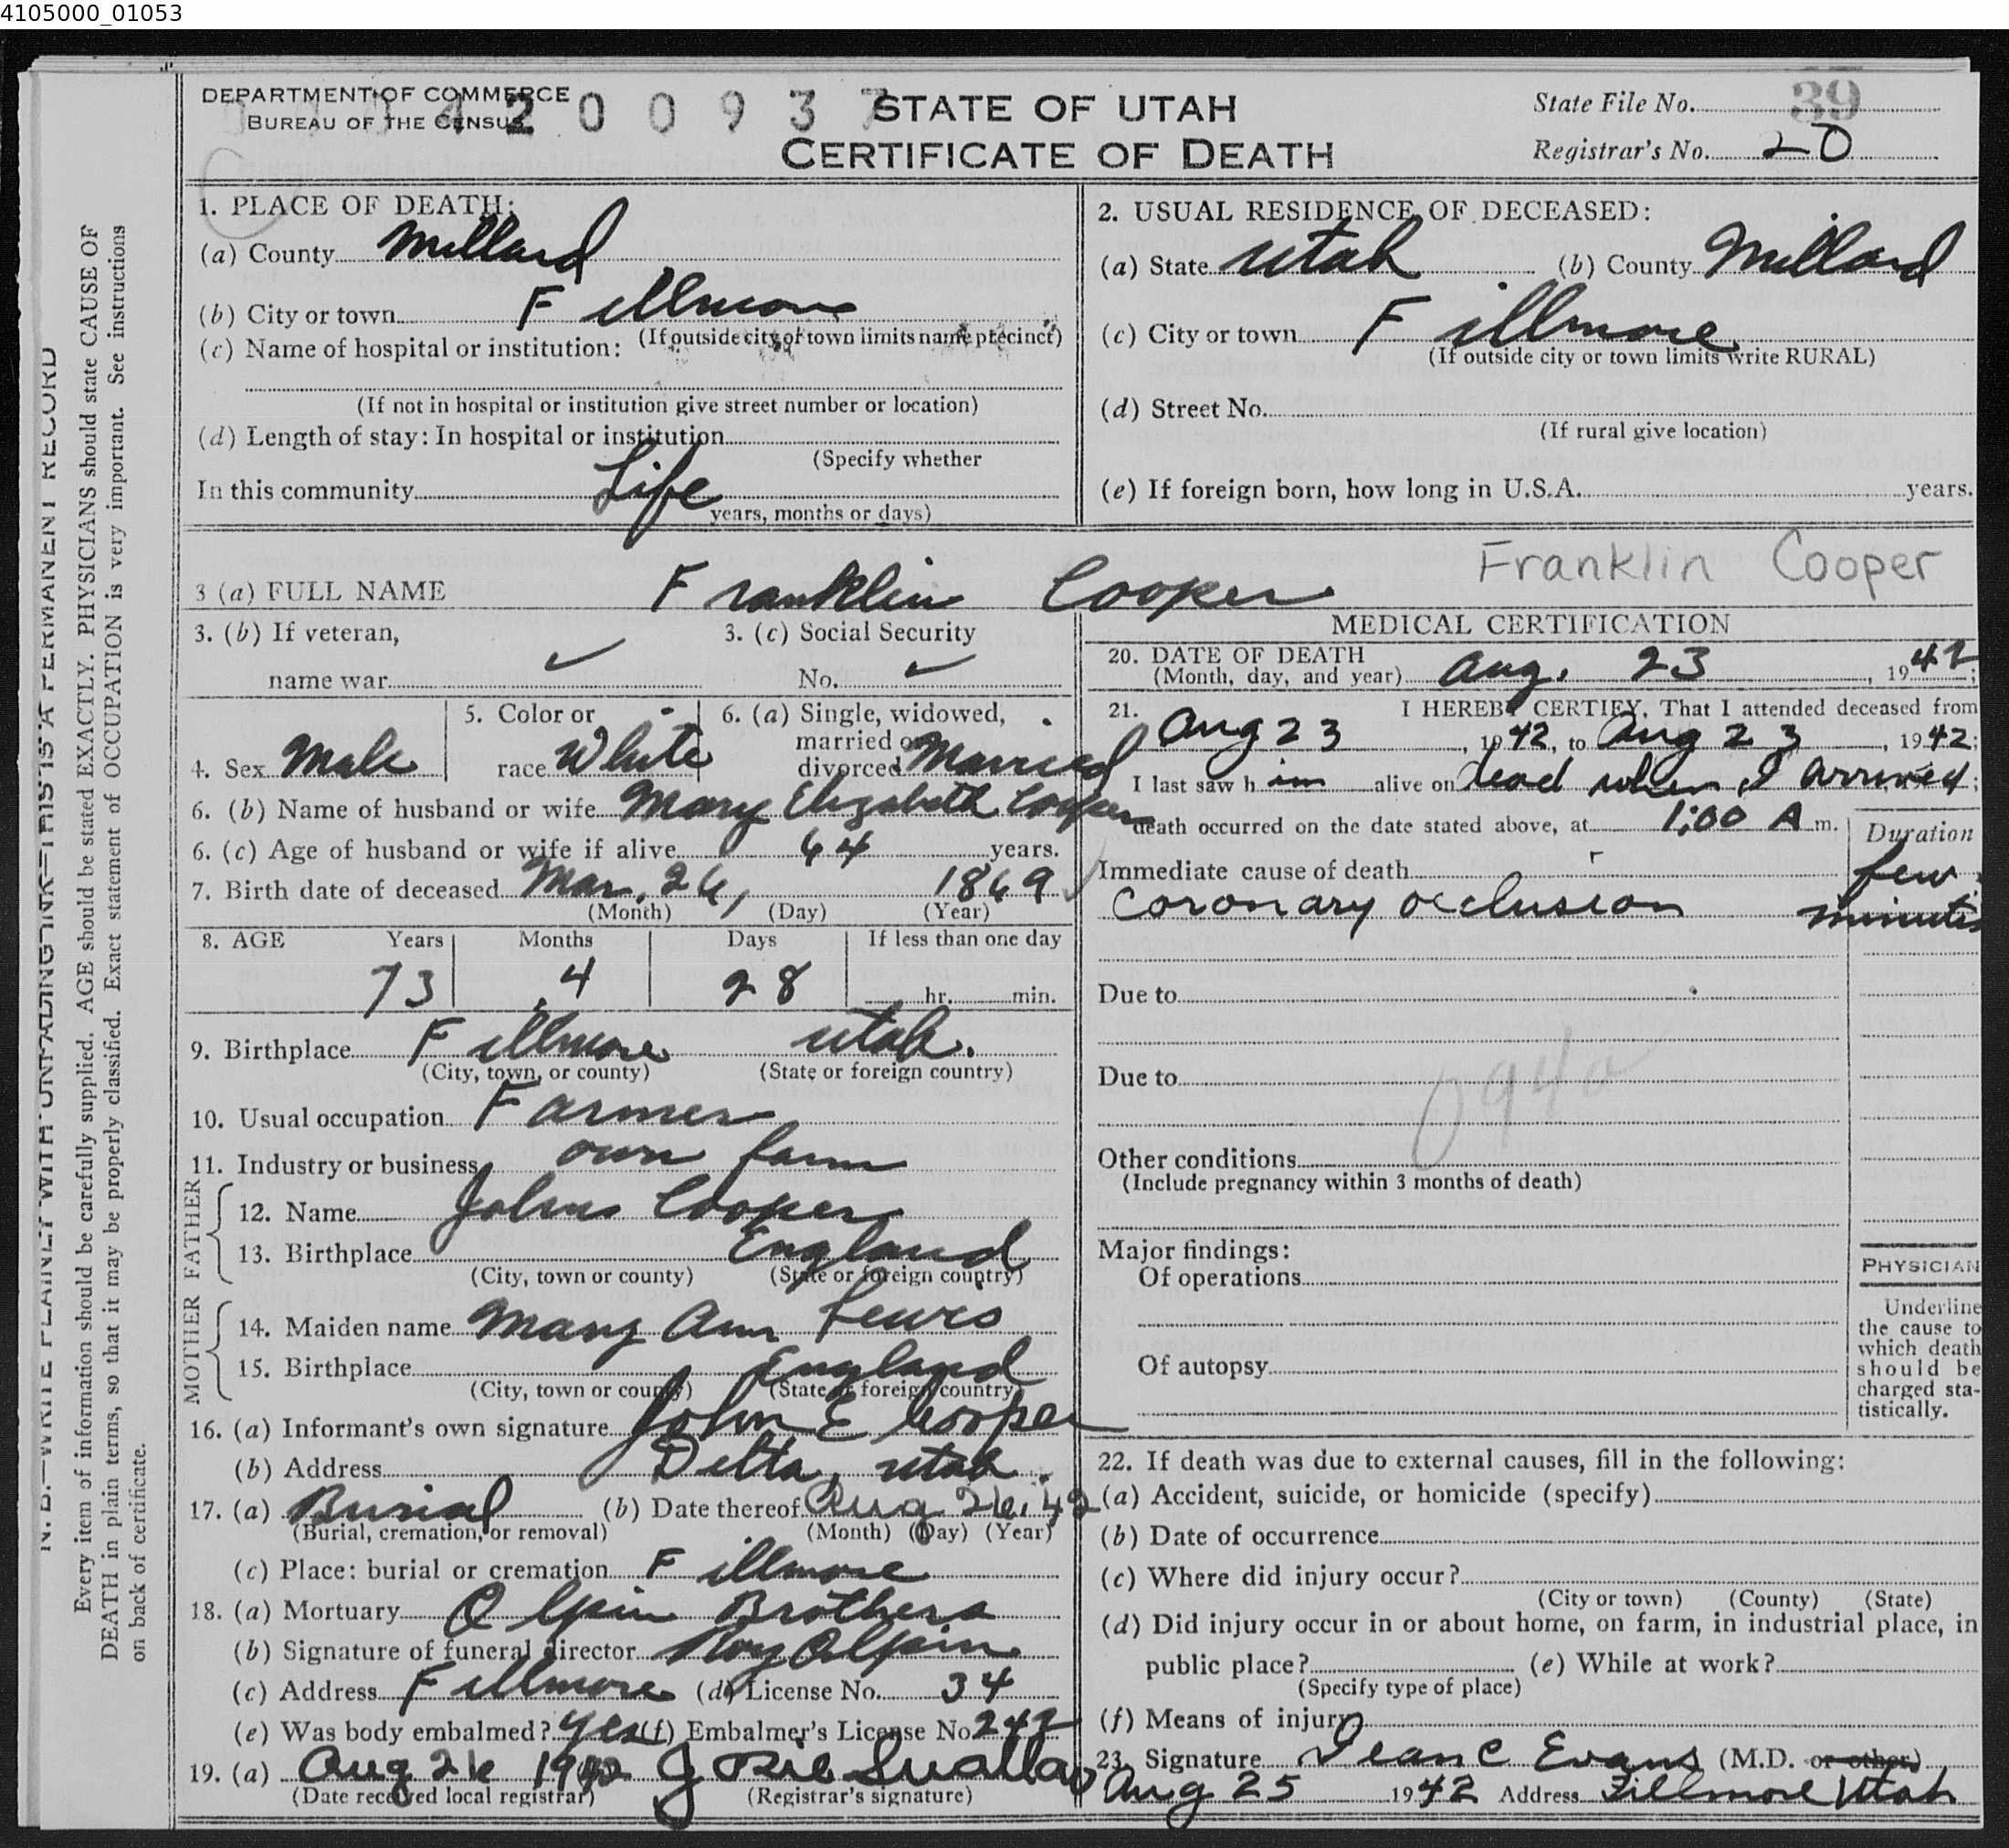 4105000_01053
DEPARTMENT OF COMMERCE
BUREAU OF THE CENSUS
4 2 0 0 9 3 7
STATE OF UTAH
CERTIFICATE OF DEATH
State File No. 39
Registrar's No. 20
1. PLACE OF DEATH:
(a) County Millard
(b) City or town Fillmore
(If outside city or town limits name precinct)
(c) Name of hospital or institution:
(If not in hospital or institution give street number or location)
(d) Length of stay: In hospital or institution
(Specify whether
In this community Life
years, months or days)
2. USUAL RESIDENCE OF DECEASED:
(a) State Utah (b) County Millard
(c) City or town Fillmore
(If outside city or town limits write RURAL)
(d) Street No.
(If rural give location)
(e) If foreign born, how long in U.S.A. years.
Franklin Cooper
3 (a) FULL NAME Franklin Cooper
3. (b) If veteran,
name war ✓
3. (c) Social Security
No. ✓
4. Sex Male
5. Color or
race White
6. (a) Single, widowed,
married or
divorced Married
6. (b) Name of husband or wife Mary Elizabeth Cooper
6. (c) Age of husband or wife if alive 64 years.
7. Birth date of deceased Mar. 26, 1869
(Month) (Day) (Year)
8. AGE Years Months Days If less than one day
73 4 28 hr. min.
9. Birthplace Fillmore Utah.
(City, town, or county) (State or foreign country)
10. Usual occupation Farmer
11. Industry or business own farm
FATHER
12. Name John Cooper
13. Birthplace England
(City, town or county) (State or foreign country)
MOTHER
14. Maiden name Mary Ann Lewis
15. Birthplace England
(City, town or county) (State or foreign country)
16. (a) Informant's own signature John E Cooper
(b) Address Delta, Utah.
17. (a) Burial (b) Date thereof Aug 26, 42
(Burial, cremation, or removal) (Month) (Day) (Year)
(c) Place: burial or cremation Fillmore
18. (a) Mortuary Olpin Brothers
(b) Signature of funeral director Roy Olpin
(c) Address Fillmore (d) License No. 34
(e) Was body embalmed? Yes (f) Embalmer's License No 242
19. (a) Aug 26 1942
(Date received local registrar) (Registrar's signature)
MEDICAL CERTIFICATION
20. DATE OF DEATH
(Month, day, and year) Aug. 23, 1942;
21. I HEREBY CERTIFY, That I attended deceased from
Aug 23, 1942, to Aug 23, 1942;
I last saw him alive on dead when I arrived;
death occurred on the date stated above, at 1:00 A m.
Duration
Immediate cause of death few
coronary occlusion minutes
Due to
Due to
094a
Other conditions
(Include pregnancy within 3 months of death)
Major findings:
Of operations
Of autopsy
PHYSICIAN
Underline
the cause to
which death
should be
charged sta-
tistically.
22. If death was due to external causes, fill in the following:
(a) Accident, suicide, or homicide (specify)
(b) Date of occurrence
(c) Where did injury occur?
(City or town) (County) (State)
(d) Did injury occur in or about home, on farm, in industrial place, in
public place? (e) While at work?
(Specify type of place)
(f) Means of injury
23. Signature Dean C Evans (M.D. or other)
Aug 25 1942 Address Fillmore Utah
N. B.—WRITE PLAINLY WITH UNFADING INK—THIS IS A PERMANENT RECORD
Every item of information should be carefully supplied. AGE should be stated EXACTLY. PHYSICIANS should state CAUSE OF
DEATH in plain terms, so that it may be properly classified. Exact statement of OCCUPATION is very important. See instructions
on back of certificate.